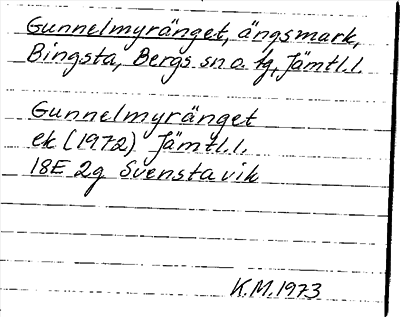 Gunnelmyränget, ängsmark,
Bingsta, Bergs sn o. tg, Jämtl.l.
Gunnelmyränget
ek (1972) Jämtl.l.
18E 2g Svenstavik
K.M.1973